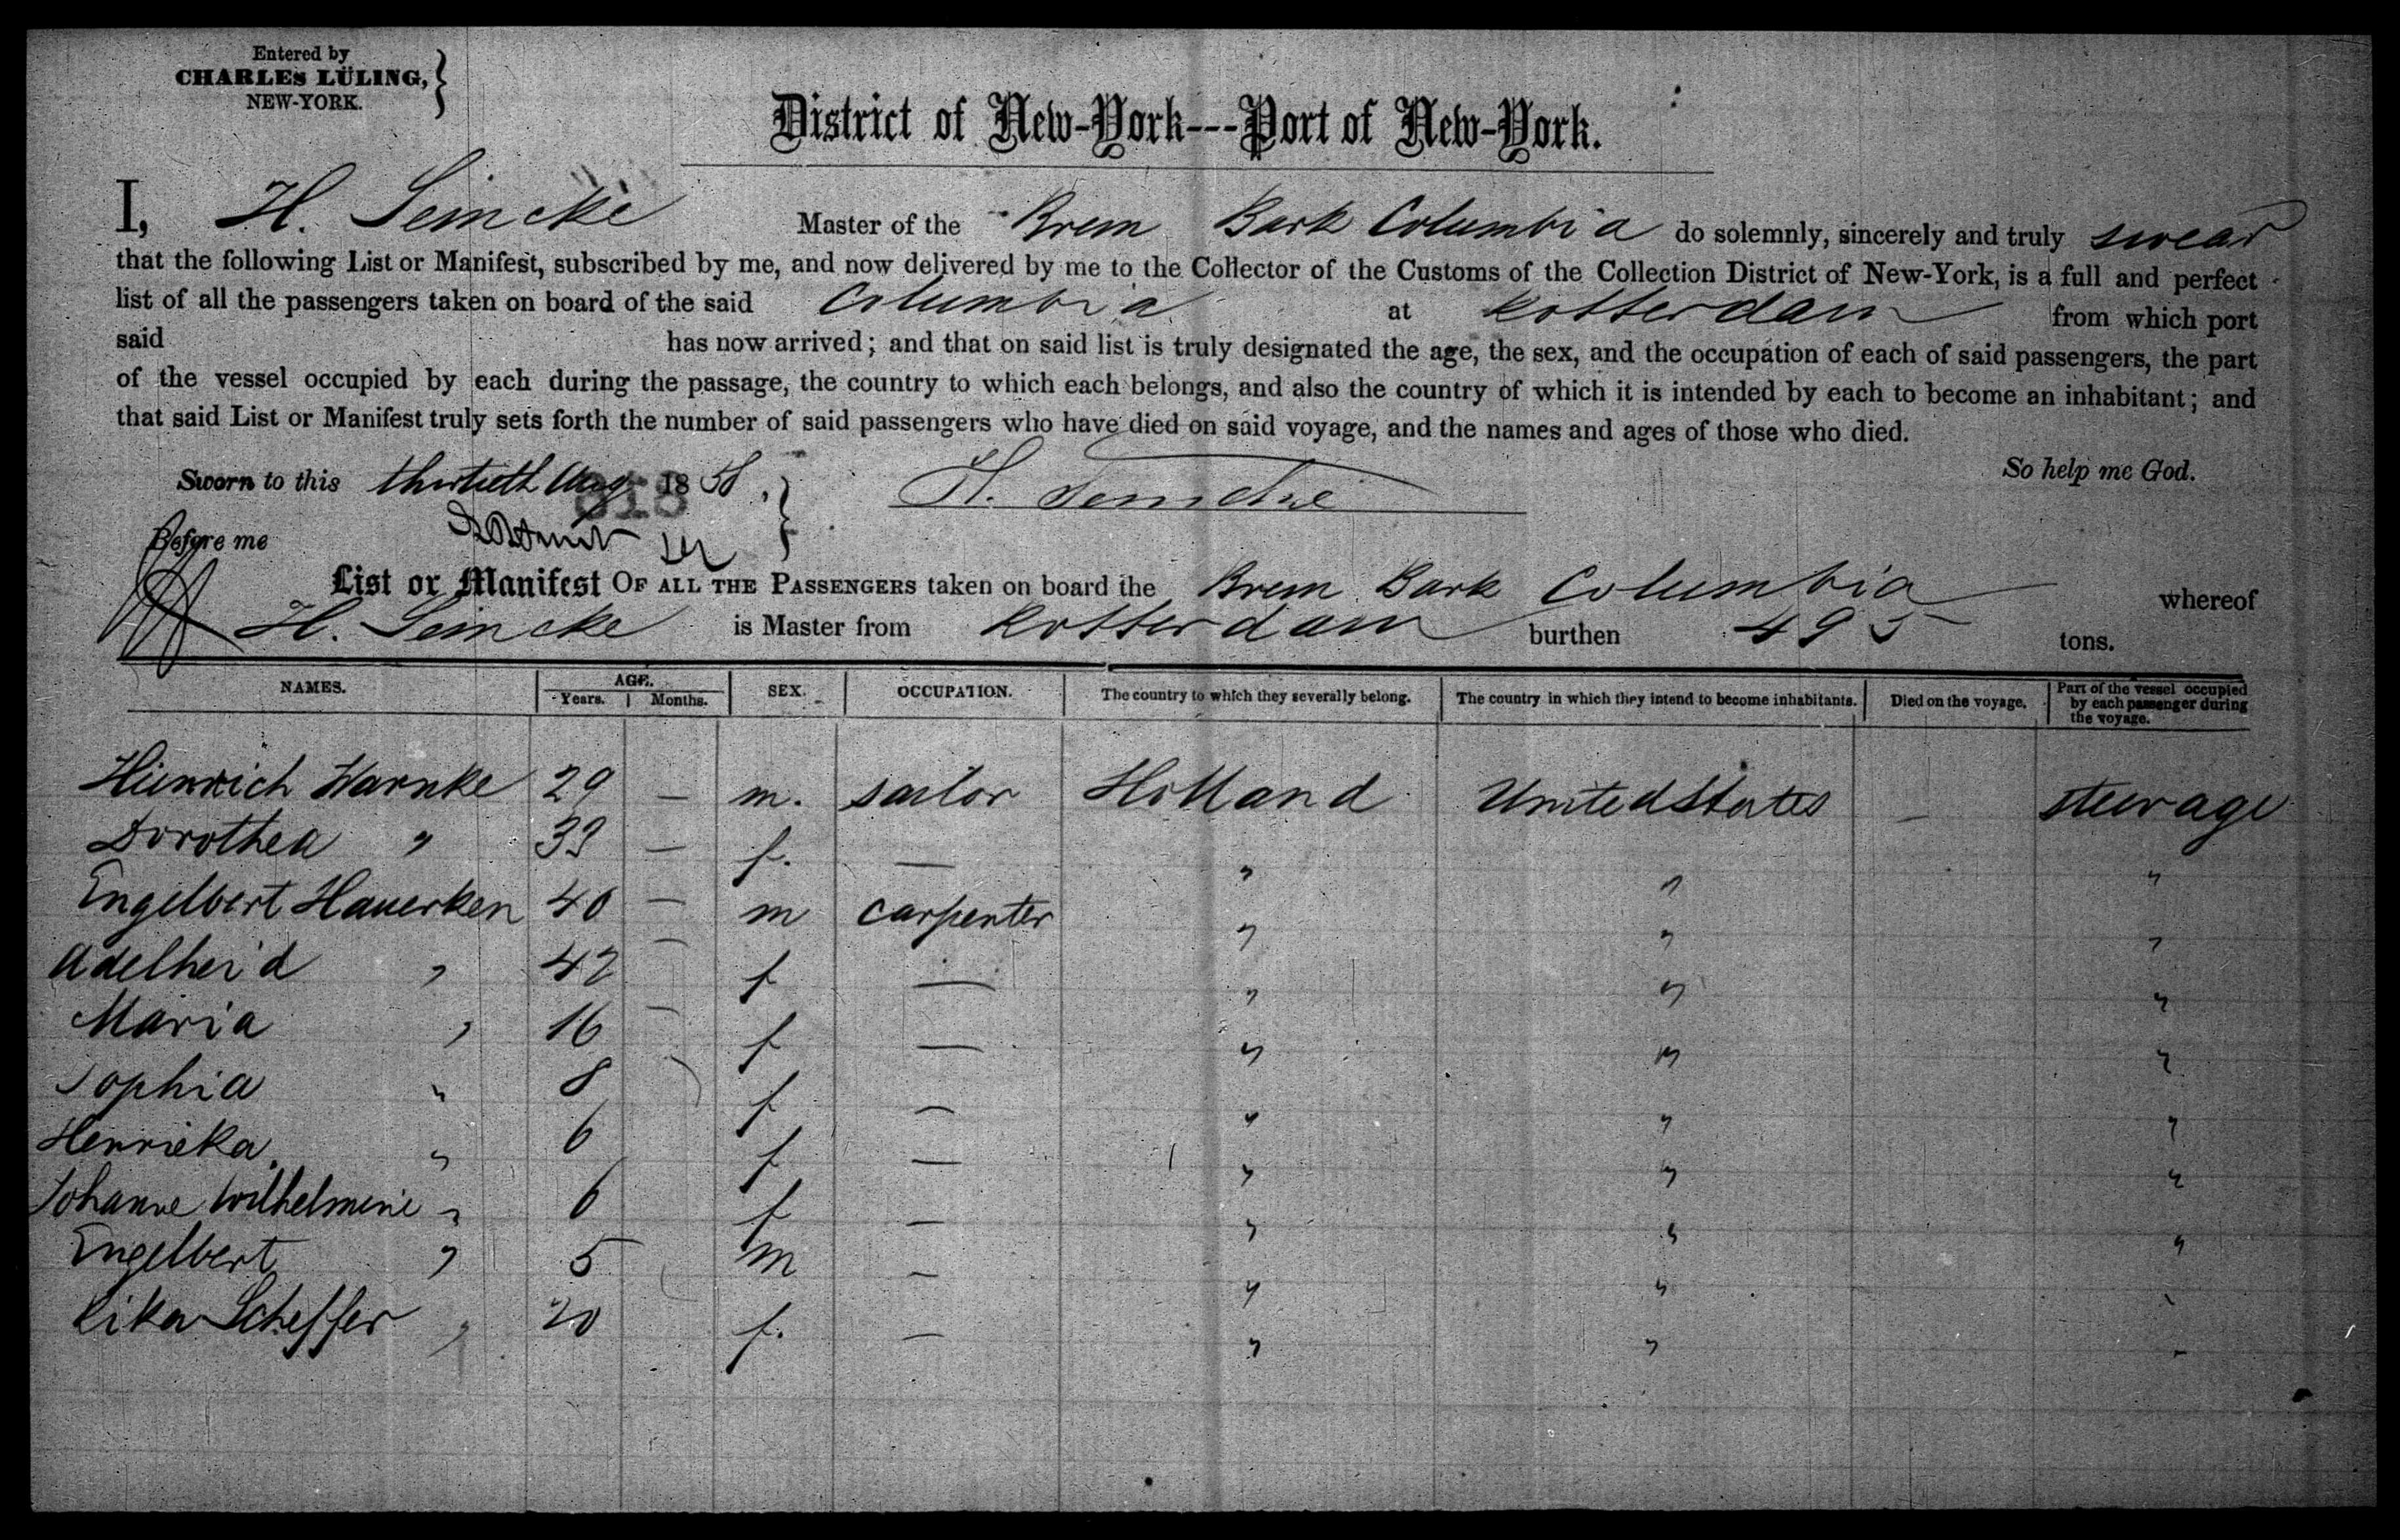 Entered by
CHARLES LÜLING,
NEW-YORK.
District of New-York---Port of New-York.
I, H. Leincke Master of the Brem Bark Columbia do solemnly, sincerely and truly swear
that the following List or Manifest, subscribed by me, and now delivered by me to the Collector of the Customs of the Collection District of New-York, is a full and perfect
list of all the passengers taken on board of the said Columbia at Rotterdam from which port
said has now arrived; and that on said list is truly designated the age, the sex, and the occupation of each of said passengers, the part
of the vessel occupied by each during the passage, the country to which each belongs, and also the country of which it is intended by each to become an inhabitant; and
that said List or Manifest truly sets forth the number of said passengers who have died on said voyage, and the names and ages of those who died.
So help me God.
Sworn to this thirtieth Aug 1858.
H.
Before me
List or Manifest OF ALL THE PASSENGERS taken on board the Brem Bark Columbia whereof
H. Leincke is Master from Rotterdam burthen 495 tons.
NAMES. AGE. Years. Months. SEX. OCCUPATION. The country to which they severally belong. The country in which they intend to become inhabitants. Died on the voyage. Part of the vessel occupied by each passenger during the voyage.
Heinrich Warnke 29 — m. sailor Holland United States — steerage
Dorothea " 39 — f. — " " "
Engelbert Hauerken 40 — m carpenter " " "
Adelheid " 42 — f — " " "
Maria " 16 — f — " " "
Sophia " 8 f — " " "
Henrieka " 6 f — " " "
Johanne Wilhelmine " 6 f — " " "
Engelbert " 5 m — " " "
Rika Scheffer " 20 f. — " " "